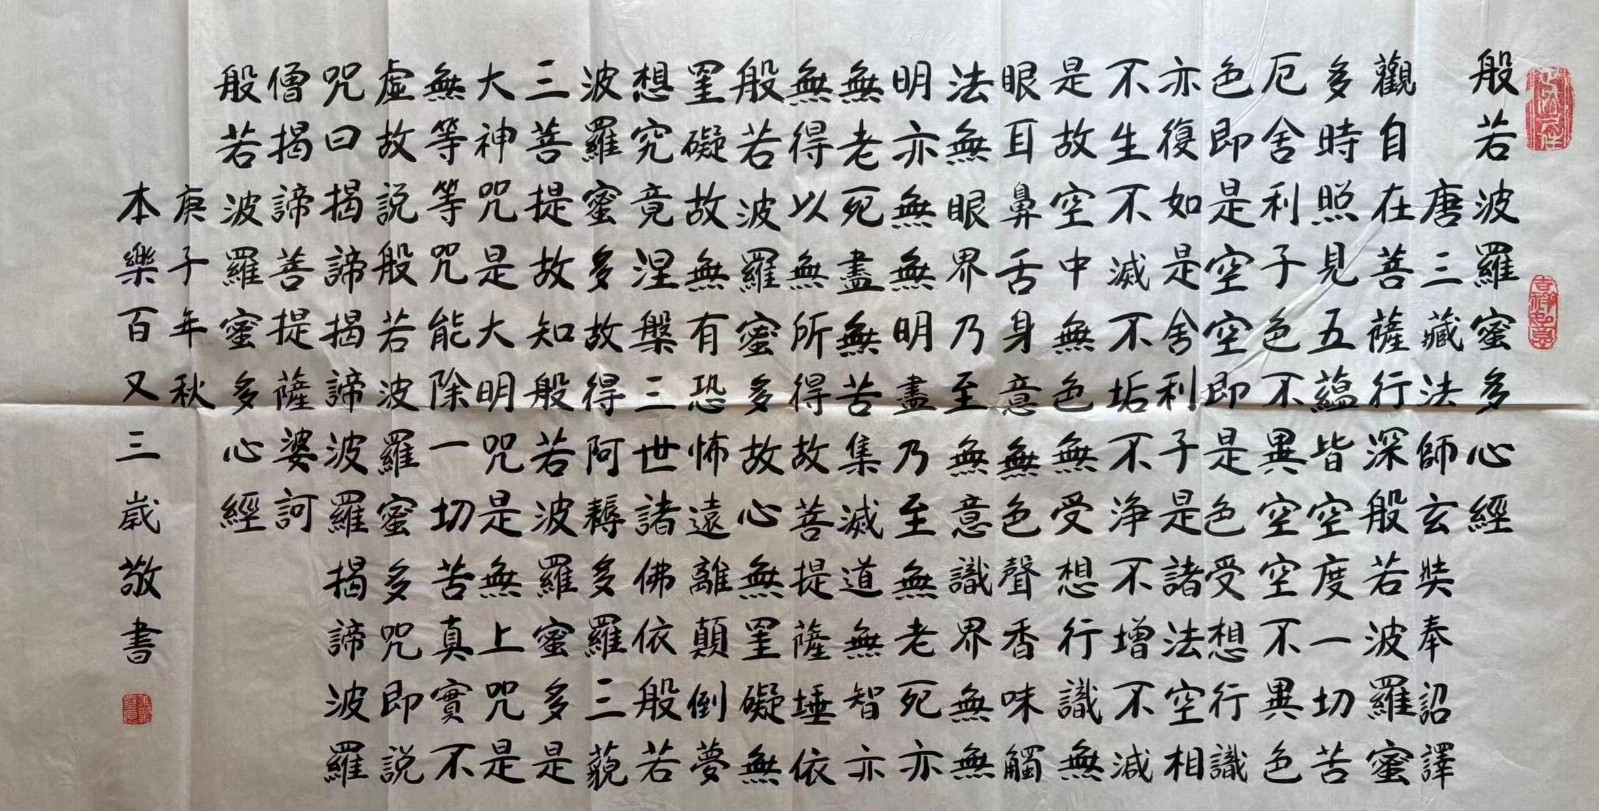 般若波羅蜜多心經
唐三藏法師玄奘奉詔譯
觀自在菩薩行深般若波羅蜜
多時照見五蘊皆空度一切苦
厄舍利子色不異空空不異色
色即是空空即是色受想行識
亦復如是舍利子是諸法空相
不生不滅不垢不浄不增不減
是故空中無色無受想行識無
眼耳鼻舌身意無色聲香味觸
法無眼界乃至無意識界無無
明亦無無明盡乃至無老死亦
無老死盡無苦集滅道無智亦
無得以無所得故菩提薩埵依
般若波羅蜜多故心無罣礙無
罣礙故無有恐怖遠離顛倒夢
想究竟涅槃三世諸佛依般若
波羅蜜多故得阿耨多羅三藐
三菩提故知般若波羅蜜多是
大神咒是大明咒是無上咒是
無等等咒能除一切苦真實不
虛故說般若波羅蜜多咒即說
咒曰揭諦揭諦波羅揭諦波羅
僧揭諦菩提薩婆訶
般若波羅蜜多心經
庚子年秋
本樂百又三歲敬書